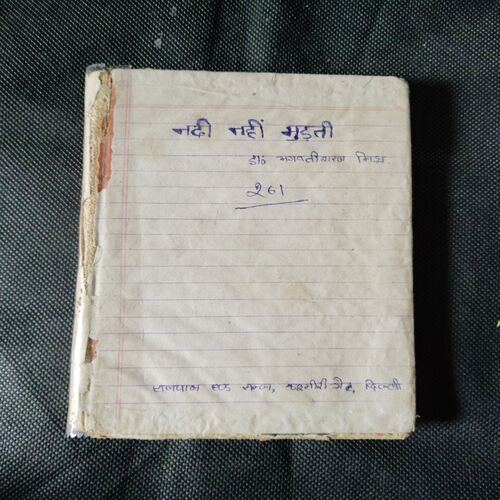 नदी नहीं मुड़ती
डा० भगवतीशरण मिश्र
२६१
राजपाल एण्ड सन्ज, कश्मीरी गेट, दिल्ली